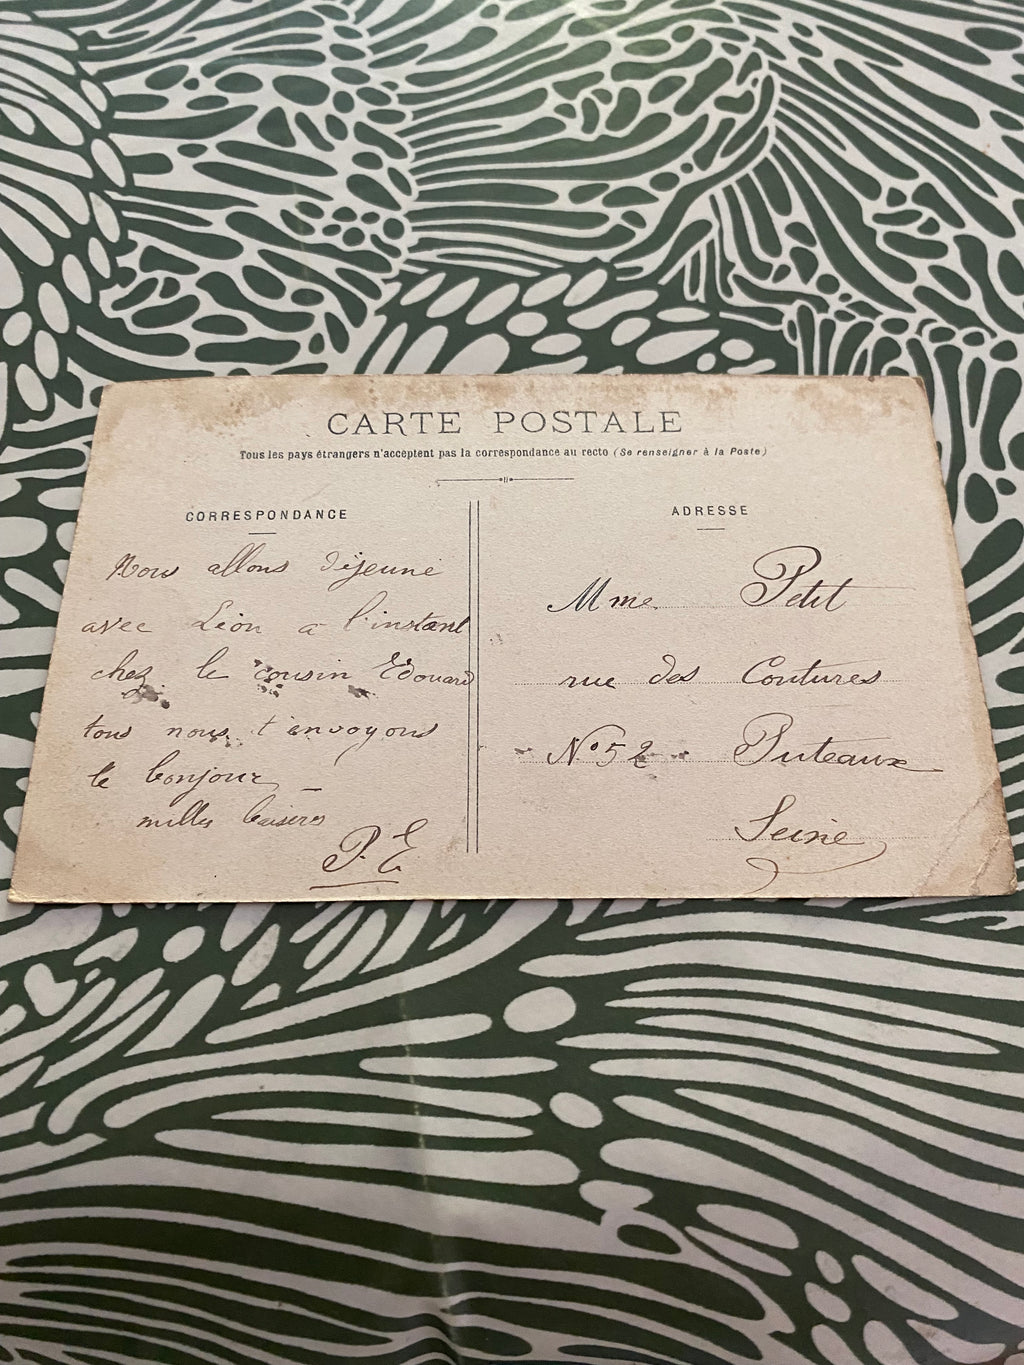 CARTE POSTALE
Tous les pays étrangers n'acceptent pas la correspondance au recto (Se renseigner à la Poste)
CORRESPONDANCE
Nous allons déjeuné
avec Léon a l'instant
chez le cousin Edouard
tous nous t'envoyons
le bonjour
milles baisers
P. E
ADRESSE
Mme Petit
rue des Coutures
N° 52 Puteaux
Seine